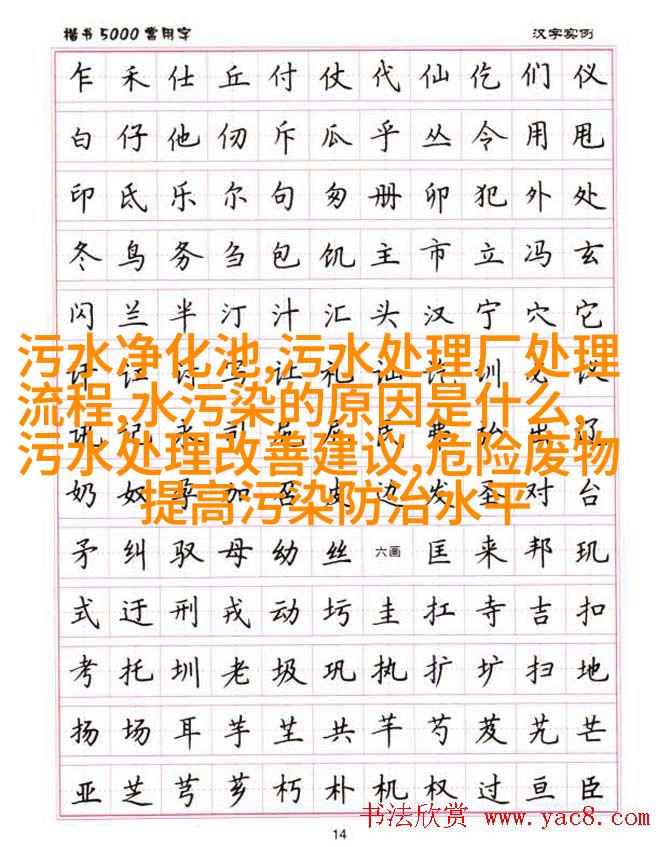 楷书5000常用字 汉字实例
乍 禾 仕 丘 付 仗 代 仙 仡 们 仪
白 仔 他 仞 斥 瓜 乎 丛 令 用 甩
印 氐 乐 尔 句 匆 册 卯 犯 外 处
冬 鸟 务 刍 包 饥 主 市 立 冯 玄
闪 兰 半 汀 汁 汇 头 汉 宁 穴 它
污水净化池,污水处理厂处理
流程,水污染的原因是什么,
污水处理改善建议,危险废物
提高污染防治水平
奶 奴 孕 加 召 皮 边 发 圣 对 台
矛 纠 驭 母 幼 丝 六画 匡 耒 邦 玑
式 迂 刑 戎 动 圬 圭 扛 寺 吉 扣
考 托 圳 老 圾 巩 执 扩 圹 扫 地
扬 场 耳 芋 芏 共 芊 芍 芨 芄 芒
亚 芝 芎 芗 朽 朴 机 权 过 亘 臣
书法欣赏 www.yac8.com
14